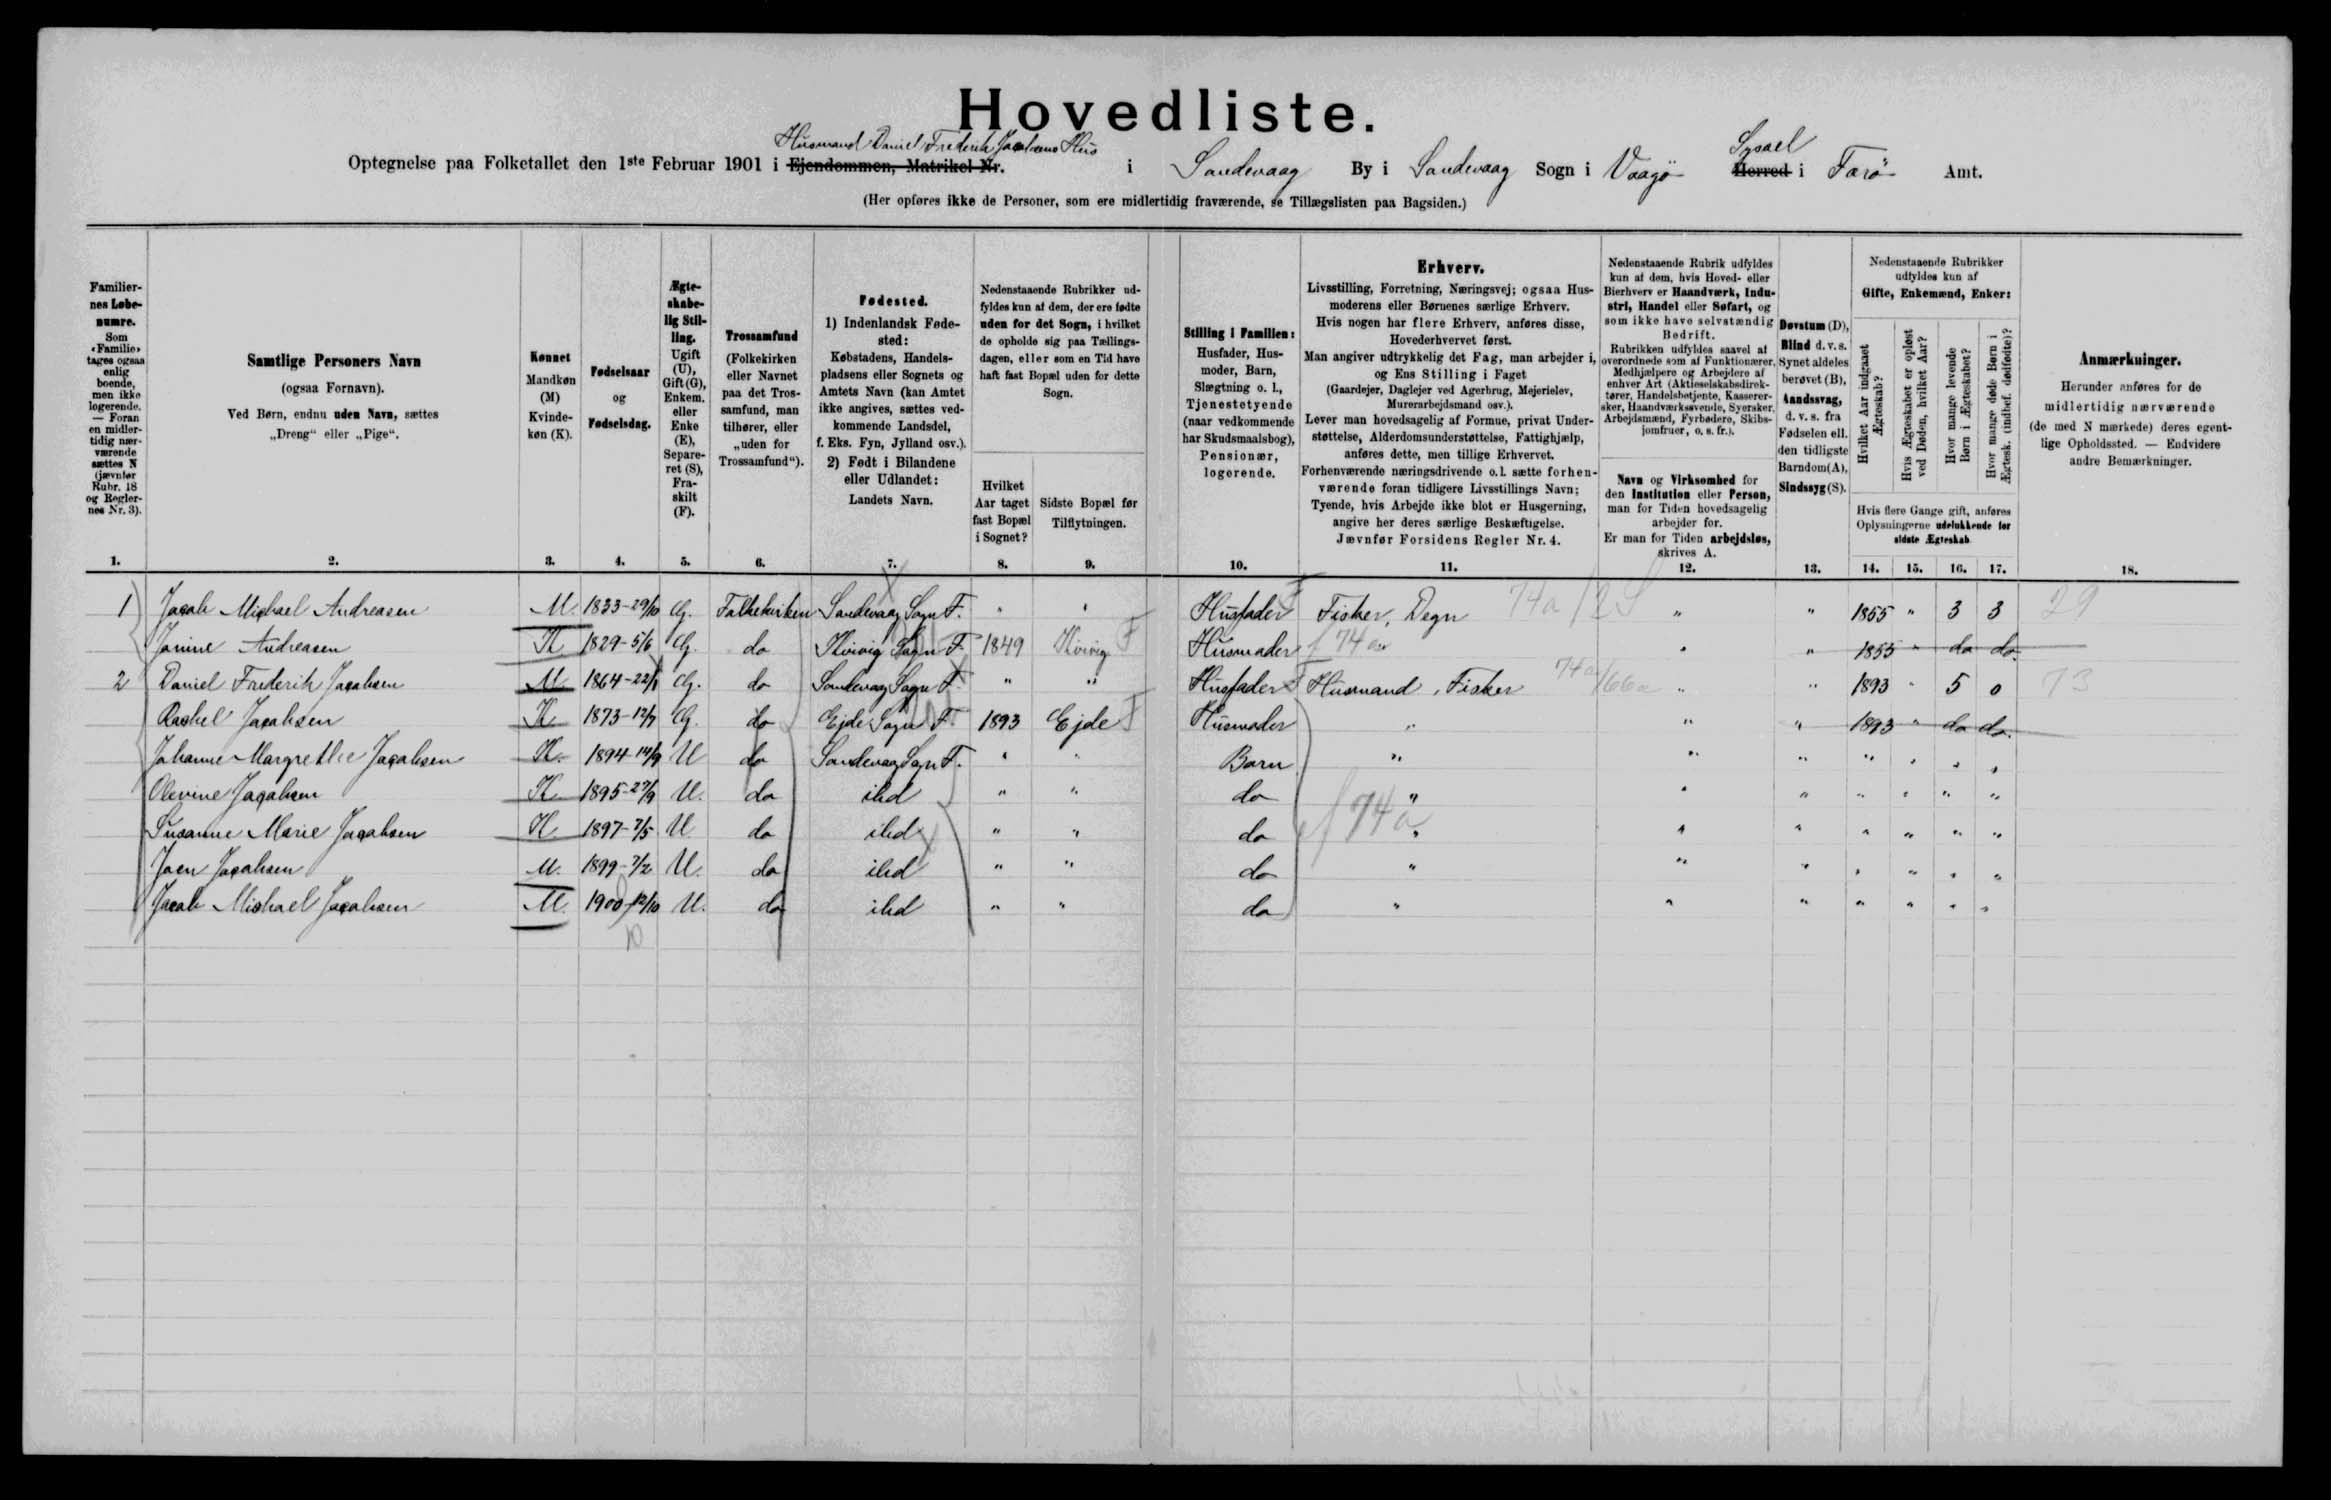 Hovedliste.
Husmand Daniel Frederik Jacobsens Hus
Sysael
Optegnelse paa Folketallet den 1ste Februar 1901 i Ejendommen, Matrikel Nr. i Sandevaag By i Sandevaag Sogn i Vaagö Herred i Færö Amt.
(Her opføres ikke de Personer, som ere midlertidig fraværende, se Tillægslisten paa Bagsiden.)
Familiernes Løbenumre. Som «Familie» tages ogsaa enlig boende, men ikke logerende. — Foran en midlertidig nærværende sættes N (jævnfør Rubr. 18 og Reglernes Nr. 3).
Samtlige Personers Navn
(ogsaa Fornavn).
Ved Børn, endnu uden Navn, sættes
„Dreng“ eller „Pige“.
Kønnet
Mandkøn
(M)
Kvinde-
køn (K).
Fødselsaar
og
Fødselsdag.
Ægte-
skabe-
lig Stil-
ling.
Ugift
(U),
Gift (G),
Enkem.
eller
Enke
(E),
Separe-
ret (S),
Fra-
skilt
(F).
Trossamfund
(Folkekirken
eller Navnet
paa det Tros-
samfund, man
tilhører, eller
„uden for
Trossamfund“).
Fødested.
1) Indenlandsk Føde-
sted:
Købstadens, Handels-
pladsens eller Sognets og
Amtets Navn (kan Amtet
ikke angives, sættes ved-
kommende Landsdel,
f. Eks. Fyn, Jylland osv.).
2) Født i Bilandene
eller Udlandet:
Landets Navn.
Nedenstaaende Rubrikker ud-
fyldes kun af dem, der ere fødte
uden for det Sogn, i hvilket
de opholde sig paa Tællings-
dagen, eller som en Tid have
haft fast Bopæl uden for dette
Sogn.
Hvilket
Aar taget
fast Bopæl
i Sognet?
Sidste Bopæl før
Tilflytningen.
Stilling i Familien:
Husfader, Hus-
moder, Barn,
Slægtning o. l.,
Tjenestetyende
(naar vedkommende
har Skudsmaalsbog),
Pensionær,
logerende.
Erhverv.
Livsstilling, Forretning, Næringsvej; ogsaa Hus-
moderens eller Børnenes særlige Erhverv.
Hvis nogen har flere Erhverv, anføres disse,
Hovederhvervet først.
Man angiver udtrykkelig det Fag, man arbejder i,
og Ens Stilling i Faget
(Gaardejer, Daglejer ved Agerbrug, Mejerielev,
Murerarbejdsmand osv.).
Lever man hovedsagelig af Formue, privat Under-
støttelse, Alderdomsunderstøttelse, Fattighjælp,
anføres dette, men tillige Erhvervet.
Forhenværende næringsdrivende o.l. sætte forhen-
værende foran tidligere Livsstillings Navn;
Tyende, hvis Arbejde ikke blot er Husgerning,
angive her deres særlige Beskæftigelse.
Jævnfør Forsidens Regler Nr. 4.
Nedenstaaende Rubrik udfyldes
kun af dem, hvis Hoved- eller
Bierhverv er Haandværk, Indu-
stri, Handel eller Søfart, og
som ikke have selvstændig
Bedrift.
Rubrikken udfyldes saavel af
overordnede som af Funktionærer,
Medhjælpere og Arbejdere af
enhver Art (Aktieselskabsdirek-
tører, Handelsbetjente, Kasserer-
sker, Haandværkssvende, Syersker,
Arbejdsmænd, Fyrbødere, Skibs-
jomfruer, o. s. fr.).
Navn og Virksomhed for
den Institution eller Person,
man for Tiden hovedsagelig
arbejder for.
Er man for Tiden arbejdsløs,
skrives A.
Døvstum (D),
Blind d. v. s.
Synet aldeles
berøvet (B),
Aandssvag,
d. v. s. fra
Fødselen ell.
den tidligste
Barndom(A),
Sindssyg (S).
Nedenstaaende Rubrikker
udfyldes kun af
Gifte, Enkemænd, Enker:
Hvilket Aar indgaaet Ægteskab?
Hvis Ægteskabet er opløst ved Døden, hvilket Aar?
Hvor mange levende Børn i Ægteskabet?
Hvor mange døde Børn i Ægtesk. (indbef. dødfødte)?
Hvis flere Gange gift, anføres
Oplysningerne udelukkende for
sidste Ægteskab
Anmærkninger.
Herunder anføres for de
midlertidig nærværende
(de med N mærkede) deres egent-
lige Opholdssted. — Endvidere
andre Bemærkninger.
1. 2. 3. 4. 5. 6. 7. 8. 9. 10. 11. 12. 13. 14. 15. 16. 17. 18.
1 Jacob Michael Andreasen M. 1833-29/10 G. Folkekirken Sandevaag Sogn F. " " Husfader F Fisker, Degn 74a/2S " " 1855 " 3 3 29
Janine Andreasen K 1829-5/6 G. do Kvivig Sogn F. 1849 Kvivig F Husmoder f 74a " " 1855 " do do.
2 Daniel Frederik Jacobsen M 1864-22/1 G. do Sandevaag Sogn F. " " Husfader F Husmand, Fisker 74a/66a " " 1893 " 5 0 73
Rachel Jacobsen K 1873-12/7 G. do Ejde Sogn F. 1893 Ejde F Husmoder " " " 1893 " do do.
Johanne Margrethe Jacobsen K. 1894-14/9 U do Sandevaag Sogn F. " " Barn " " " " " " "
Olevine Jacobsen K 1895-27/9 U. do ibd " " do " " " " " " "
Susanne Marie Jacobsen K 1897-7/5 U. do ibd " " do f 74a " " " " " " "
Joen Jacobsen M. 1899-7/2 U. do ibd " " do " " " " " " "
Jacob Michael Jacobsen M. 1900-12/10 U. do ibd " " do " " " " " " "
10